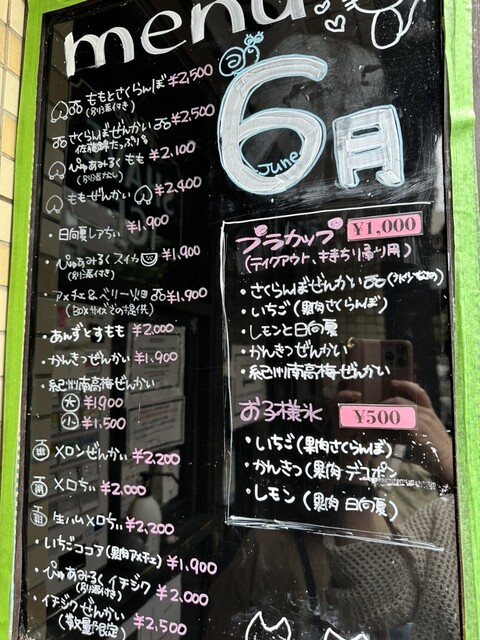 menu
6月
June
ももとさくらんぼ ¥2,500
(別添付き)
さくらんぼぜんかい ¥2,500
佐藤錦たっぷり
ぴゅあみるく もも ¥2,100
ももぜんかい ¥2,400
・日向夏レアちぃ ¥1,900
・ぴゅあみるくスイカ ¥1,900
(別添付き)
アメチェ&ベリー畑 ¥1,900
・あんずとすもも ¥2,000
・かんきつぜんかい ¥1,900
・紀州南高梅ぜんかい
大 ¥1,900
小 ¥1,500
メロンぜんかい ¥2,200
メロちぃ ¥2,000
生ハムメロちぃ ¥2,200
・いちごココア(果肉アメチェ) ¥1,900
・ぴゅあみるくイチジク ¥2,000
(別添付き)
・イチジクぜんかい
(数量限定) ¥2,500
プラカップ ¥1,000
(テイクアウト、お持ち帰り用)
・さくらんぼぜんかい
・いちご(果肉さくらんぼ)
・レモンと日向夏
・かんきつぜんかい
・紀州南高梅ぜんかい
お子様氷 ¥500
・いちご(果肉さくらんぼ)
・かんきつ(果肉 デコポン
・レモン(果肉 日向夏)